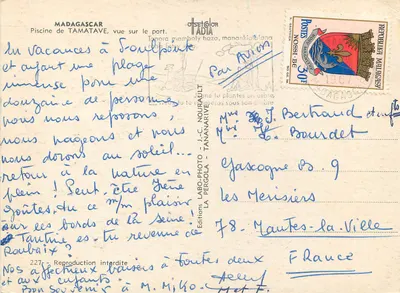 MADAGASCAR
Piscine de TAMATAVE, vue sur le port.
En vacances à Foulpointe
et ayant une plage
immense pour une
douzaine de personnes
nous nous reposons
nous nageons et nous
nous dorons au soleil...
retour à la nature en
plein ! Peut-être Irène
goûtes-tu ce m^m plaisir
sur les bords de la Seine !
Tantine, es-tu revenue de
Roubaix ?
Nos affectueux baisers à toutes deux
et aux enfants.
Bon souvenir à M.
227 - Reproduction interdite
Editions LABO-PHOTO J.-C. NOURAULT
LA PERGOLA TANANARIVE
Par Avion
REPUBLIQUE MALGACHE
POSTES
30F
NOSSI-BE
J. Bertraud et
Bourdet
Gascogne B. 9
Les Merisiers
78 - Mantes-la-Ville
FRANCE